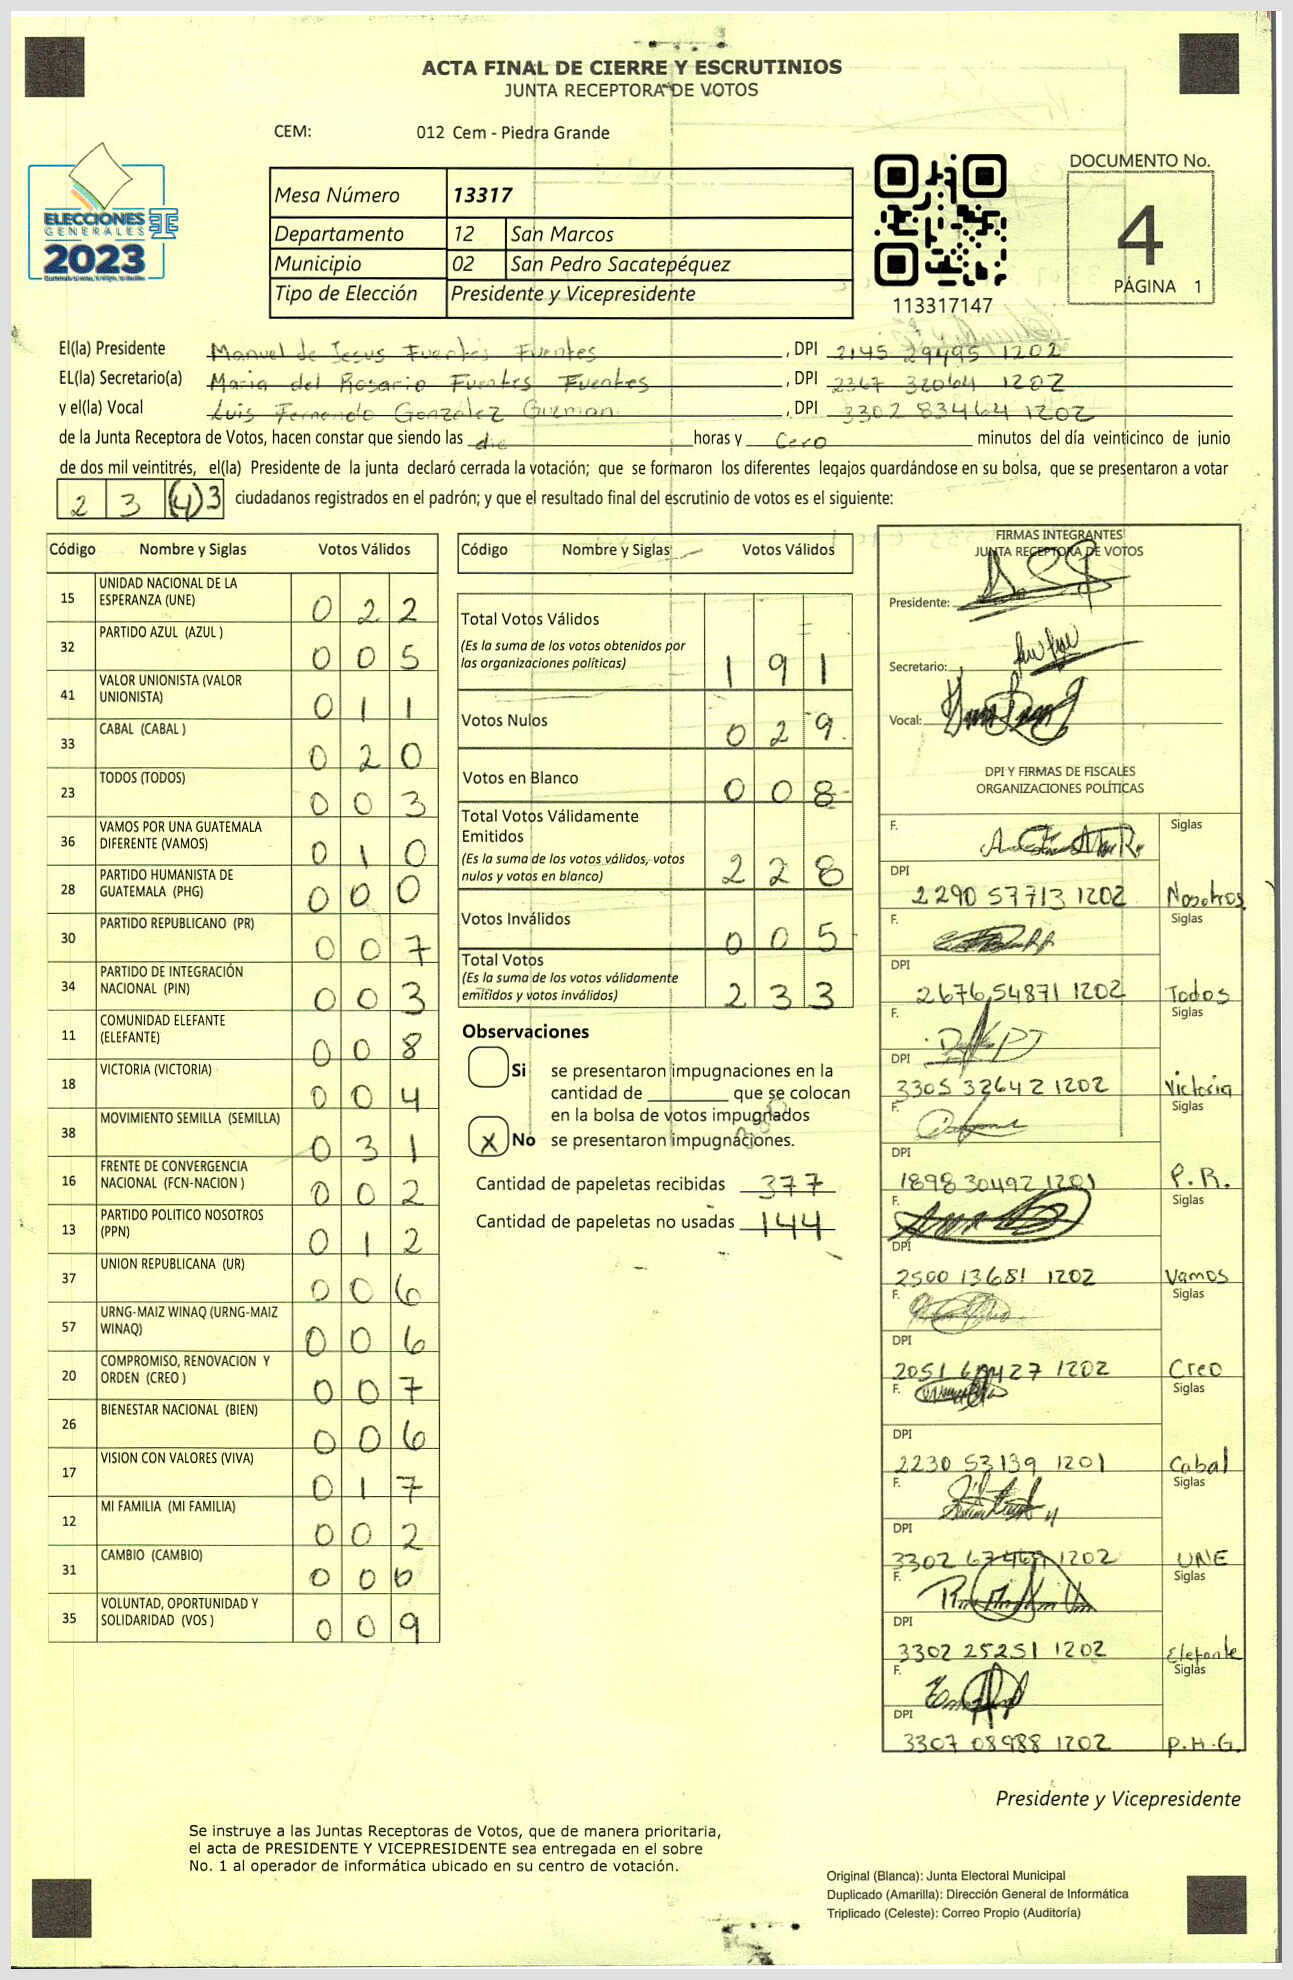 ACTA FINAL DE CIERRE Y ESCRUTINIOS
JUNTA RECEPTORA DE VOTOS
CEM: 012 Cem - Piedra Grande
ELECCIONES
GENERALES
2023
Mesa Número 13317
Departamento 12 San Marcos
Municipio 02 San Pedro Sacatepéquez
Tipo de Elección Presidente y Vicepresidente
113317147
DOCUMENTO No.
4
PÁGINA 1
El(la) Presidente Manuel de Jesus Fuentes Fuentes, DPI 2145 29495 1202
EL(la) Secretario(a) Maria del Rosario Fuentes Fuentes, DPI 2367 32064 1202
y el(la) Vocal Luis Fernando González Guzman, DPI 3302 83464 1202
de la Junta Receptora de Votos, hacen constar que siendo las horas y Cero minutos del día veinticinco de junio
de dos mil veintitrés, el(la) Presidente de la junta declaró cerrada la votación; que se formaron los diferentes legajos guardándose en su bolsa, que se presentaron a votar
2 3 (4)3 ciudadanos registrados en el padrón; y que el resultado final del escrutinio de votos es el siguiente:
Código Nombre y Siglas Votos Válidos
15 UNIDAD NACIONAL DE LA ESPERANZA (UNE) 0 2 2
32 PARTIDO AZUL (AZUL ) 0 0 5
41 VALOR UNIONISTA (VALOR UNIONISTA) 0 1 1
33 CABAL (CABAL ) 0 2 0
23 TODOS (TODOS) 0 0 3
36 VAMOS POR UNA GUATEMALA DIFERENTE (VAMOS) 0 1 0
28 PARTIDO HUMANISTA DE GUATEMALA (PHG) 0 0 0
30 PARTIDO REPUBLICANO (PR) 0 0 7
34 PARTIDO DE INTEGRACIÓN NACIONAL (PIN) 0 0 3
11 COMUNIDAD ELEFANTE (ELEFANTE) 0 0 8
18 VICTORIA (VICTORIA) 0 0 4
38 MOVIMIENTO SEMILLA (SEMILLA) 0 3 1
16 FRENTE DE CONVERGENCIA NACIONAL (FCN-NACION ) 0 0 2
13 PARTIDO POLITICO NOSOTROS (PPN) 0 1 2
37 UNION REPUBLICANA (UR) 0 0 6
57 URNG-MAIZ WINAQ (URNG-MAIZ WINAQ) 0 0 6
20 COMPROMISO, RENOVACION Y ORDEN (CREO ) 0 0 7
26 BIENESTAR NACIONAL (BIEN) 0 0 6
17 VISION CON VALORES (VIVA) 0 1 7
12 MI FAMILIA (MI FAMILIA) 0 0 2
31 CAMBIO (CAMBIO) 0 0 0
35 VOLUNTAD, OPORTUNIDAD Y SOLIDARIDAD (VOS ) 0 0 9
Código Nombre y Siglas Votos Válidos
Total Votos Válidos
(Es la suma de los votos obtenidos por las organizaciones políticas) 1 9 1
Votos Nulos 0 2 9
Votos en Blanco 0 0 8
Total Votos Válidamente Emitidos
(Es la suma de los votos válidos, votos nulos y votos en blanco) 2 2 8
Votos Inválidos 0 0 5
Total Votos
(Es la suma de los votos válidamente emitidos y votos inválidos) 2 3 3
Observaciones
Si se presentaron impugnaciones en la
cantidad de ________ que se colocan
en la bolsa de votos impugnados
X No se presentaron impugnaciones.
Cantidad de papeletas recibidas 377
Cantidad de papeletas no usadas 144
FIRMAS INTEGRANTES
JUNTA RECEPTORA DE VOTOS
Presidente:
Secretario:
Vocal:
DPI Y FIRMAS DE FISCALES
ORGANIZACIONES POLÍTICAS
F. Siglas
DPI 2290 57713 1202 Nosotros
F. Siglas
DPI 2676 54871 1202 Todos
F. Siglas
DPI 3305 32642 1202 Victoria
F. Siglas
DPI 1898 30492 1201 P.R.
F. Siglas
DPI 2500 13681 1202 Vamos
F. Siglas
DPI 2051 1202 Creo
F. Siglas
DPI 2230 53139 1201 Cabal
F. Siglas
DPI 3302 1202 UNE
F. Siglas
DPI 3302 25251 1202 Elefante
F. Siglas
DPI 3307 08988 1202 P.H.G.
Presidente y Vicepresidente
Se instruye a las Juntas Receptoras de Votos, que de manera prioritaria,
el acta de PRESIDENTE Y VICEPRESIDENTE sea entregada en el sobre
No. 1 al operador de informática ubicado en su centro de votación.
Original (Blanca): Junta Electoral Municipal
Duplicado (Amarilla): Dirección General de Informática
Triplicado (Celeste): Correo Propio (Auditoría)